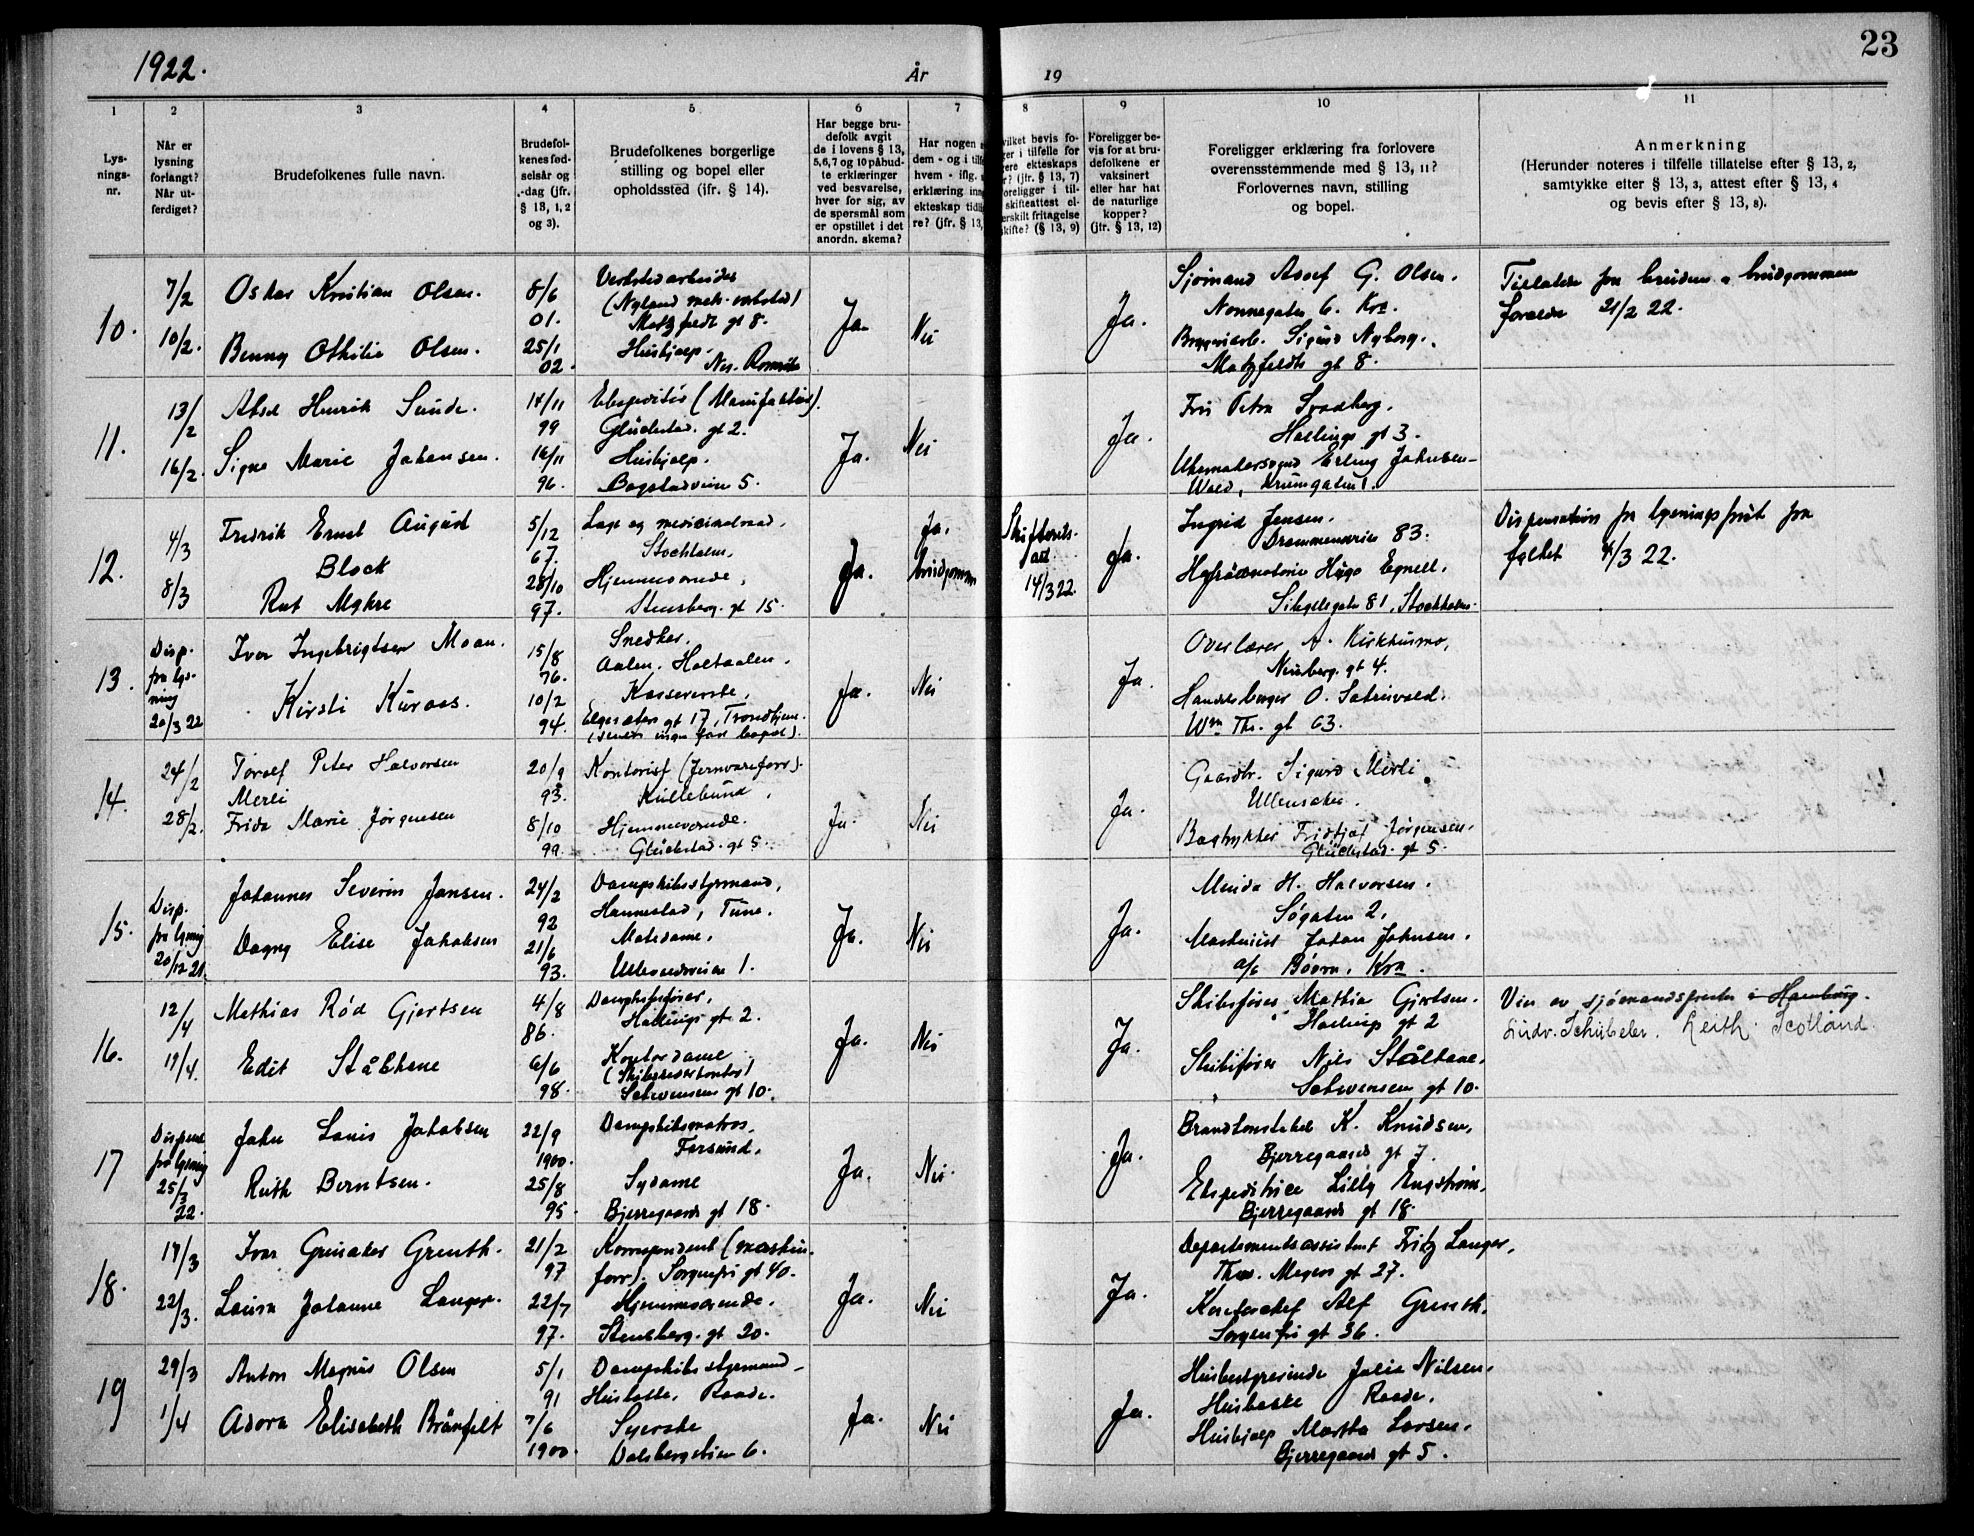 1922.
År
19
23
1
2
3
4
5
6
7
8
9
10
11
Lys-
nings-
nr.
Når er
lysning
forlangt?
Når ut-
ferdiget?
Brudefolkenes fulle navn.
Brudefol-
kenes fød-
selsår og
-dag (jfr.
§ 13, 1, 2
og 3).
Brudefolkenes borgerlige
stilling og bopel eller
opholdssted (ifr. § 14).
Har begge bru-
defolk avgit
de i lovens § 13,
5,6,7 og 10 påbud-
te erklæringer
ved besvarelse,
hver for sig, av
de spørsmål som
er opstillet i det
anordn. skema?
Har nogen
dem - og i tilf
hvem - iflg.
erklæring inn
ekteskap tidli
re? (jfr. § 13,
vilket bevis fo-
ger i tilfelle for
gere ekteskaps
r? (jfr. § 13, 7)
oreligger i til-
skifteattest el-
erskilt fritagelse
skifte? (§ 13, 9)
Foreligger be-
vis for at bru-
defolkene er
vaksinert
eller har hat
de naturlige
kopper?
(jfr. § 13, 12)
Foreligger erklæring fra forlovere
overensstemmende med § 13, 11?
Forlovernes navn, stilling
og bopel.
Anmerkning
(Herunder noteres i tilfelle tillatelse efter § 13, 2,
samtykke efter § 13, 3, attest efter § 13, 4
og bevis efter § 13, 8).
10.
7/2
10/2.
Oskar Kristian Olsen.
Benny Othilie Olsen.
8/6
01.
25/1
02.
Verkstedarbeider
(Nyland mek. verksted)
Motzfeldt gt 8.
Hushjælp.
Nes. Romerike
Ja.
Nei
Ja.
Sjømand Assef G. Olsen.
Nonnegaten 6. Kra.
Bryggeriarb. Sigurd Nyborg.
Motzfeldts gt 8.
Tillatelse fra brudens og brudgommens
forældre 21/2 22.
11.
13/
/2
16/2.
Aksel Henrik Sunde.
Signe Marie Johansen.
14/11
99
16/11
96.
Ekspeditør (Manufaktur).
Glückstad. gt 2.
Hushjælp.
Bogstadveien 5.
Ja.
Nei
Ja.
Fru Petra Svadberg.
Hallings gt 3.
Uhrmakersvend Erling Johnsen-
Wold, Krumgaten 1.
12.
4/3
8/3
Fredrik Ernst August
Block
Rut Myhre
5/12
67.
28/10
97.
Læge og medicinalraad,
Stockholm.
Hjemmeværende,
Stensberg. gt 15.
Ja.
Ja.
brudgommen
Skifterets-
att.
14/3 22.
Ja.
Ingrid Jensen.
Drammensveien 83.
Hugo Egnell.
81, Stockholm.
Dispensation fra lysningsfrist fra
fylket 4/3 22.
13.
Disp.
fra lys-
ning
20/3 22
Iver Ingebrigtsen Moan.
Kirsti Kuraas.
15/8
76.
10/2
94.
Snedker.
Aalen. Holtaalen.
Kassererske,
Elgesæter gt 17, Trondhjem.
(senere ingen fast bopel).
Ja.
Nei
Ja.
Overlærer A. Kirkhusmo,
Neuberg. gt 4.
O. Sakrisvold.
Wm Thr. gt 63.
14.
24/2
28/2.
Toralf Peter Halvorsen
Merli
Frida Marie Jørgensen
20/9
93.
8/10
99.
Kontorist (Jernvareforr).
Kullebund,
Hjemmeværende.
Glückstad. gt 5.
Ja.
Nei
Ja.
Gaardbr. Sigurd Merli.
Ullensaker.
Bogtrykker Fridtjof Jørgensen.
Glückstad. gt 5.
15.
Disp.
fra lysning
20/12 21.
Johannes Severin Jansen.
Dagny Elise Jakobsen
24/2
92
21/6
93.
Dampskibsstyrmand,
Hannestad, Tune.
Matdame,
Ullevoldsveien 1.
Ja.
Nei
Ja.
Minda H. Halvorsen.
Søgaten 2.
Maskinist Johan Johnsen.
Kra.
16.
12/4
19/4.
Mathias Rød Gjertsen
Edit Stålhane
4/8
86.
6/6
98.
Dampskibsfører,
Hallings gt 2.
Kontordame
(Skibsrederkontor)
Schwensens gt 10.
Ja.
Nei
Ja.
Skibsfører Mathia Gjertsen.
Hallings gt 2
Skibsfører Nils Stålhane.
Schwensen gt 10.
Viet av sjømandsprester i Hamburg.
Ludv. Schübeler. Leith. Scotland.
17
Dispens.
fra lysning
25/3
22.
John Louis Jakobsen
Ruth Berntsen.
22/9
1900.
25/8
95
Dampskibsmatros.
Farsund.
Sydame
Bjerregaards gt 18.
Ja.
Nei.
Ja.
Brandkonstabel K. Knudsen,
Bjerregaards gt 7.
Ekspeditrice Lilly Engstrøm.
Bjerregaards gt 18.
18.
17/3
22/3.
Ivar Grinaker Grenth.
Laura Johanne Langer.
21/2
97
22/7
97.
Korrespondent (maskin.
forr). Sorgenfri gt 40.
Hjemmeværende.
Stensberg. gt 20.
Ja.
Nei
Ja.
Departementsassistent Fritz Langer,
Thv. Meyers gt 27.
Kontorchef Alf Grenth.
Sorgenfri gt 36.
19
29/3
1/4
Anton Magnus Olsen
Adora Elisabeth Brånfelt
5/1
91
7/6
1900.
Dampskibsstyrmand.
Husløkke, Raade.
Syerske
Dalsbergstien 6.
Ja.
Nei
Ja.
Husbestyrerinde Julie Nilsen.
Raade.
Hushjælp Martha Larsen.
Bjerregaards gt 5.